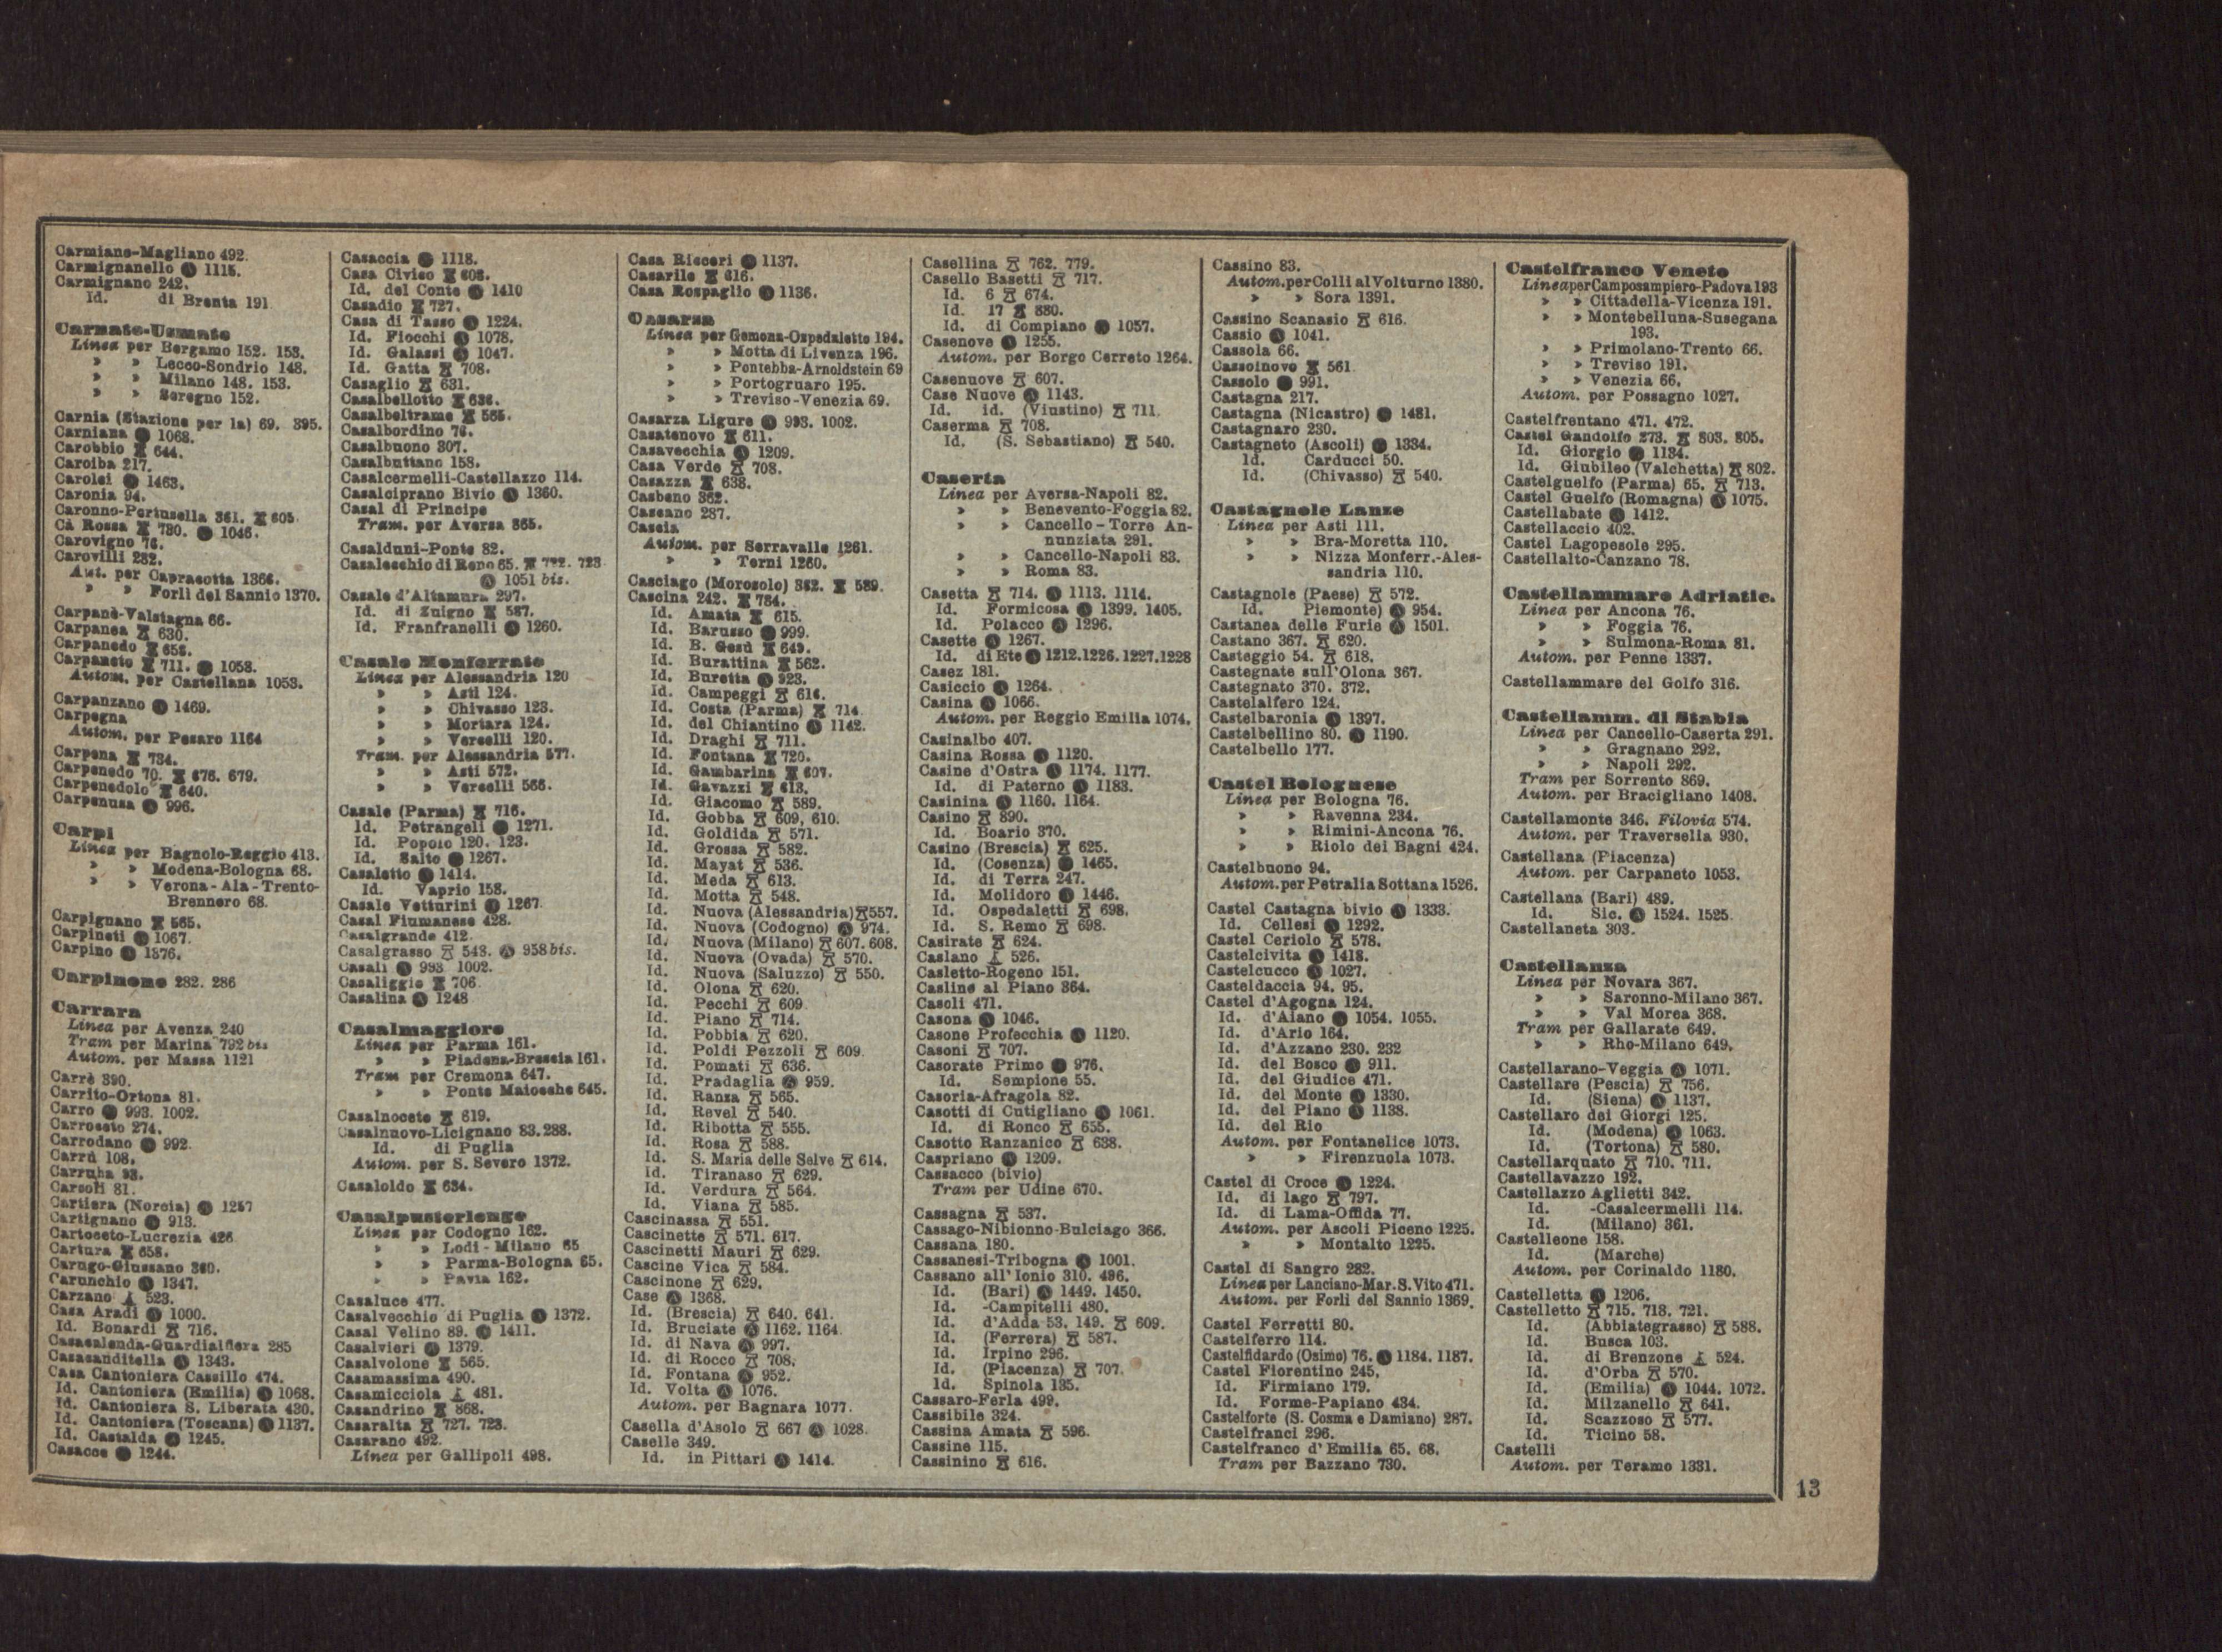 Carmiano-Magliano 492.
Carmignanello Ⓐ 1115.
Carmignano 242.
Id. di Brenta 191
Carnate-Usmate
Linea per Bergamo 152. 153.
» » Lecco-Sondrio 148.
» » Milano 148. 153.
» » Seregno 152.
Carnia (Stazione per la) 69. 395.
Carniana Ⓐ 1068.
Carobbio 644.
Caroiba 217.
Carolei Ⓐ 1463.
Caronia 94.
Caronno-Pertusella 361. 605
Cà Rossa 730. Ⓐ 1046.
Carovigno 76.
Carovilli 282.
Aut. per Capracotta 1366.
» » Forlì del Sannio 1370.
Carpanè-Valstagna 66.
Carpanea 630.
Carpanedo 658.
Carpaneto 711. Ⓐ 1053.
Autom. per Castellana 1053.
Carpanzano Ⓐ 1469.
Carpegna
Autom. per Pesaro 1164
Carpena 734.
Carpenedo 70. 676. 679.
Carpenedolo 640.
Carpenusa Ⓐ 996.
Carpi
Linea per Bagnolo-Reggio 413.
» » Modena-Bologna 68.
» » Verona-Ala-Trento-
Brennero 68.
Carpignano 565.
Carpineti Ⓐ 1067.
Carpino Ⓐ 1376.
Carpinone 282. 286
Carrara
Linea per Avenza 240
Tram per Marina 792 bis
Autom. per Massa 1121
Carrè 390.
Carrito-Ortona 81.
Carro Ⓐ 993. 1002.
Carroceto 274.
Carrodano Ⓐ 992.
Carrù 108.
Carruba 93.
Carsoli 81.
Cartiera (Norcia) Ⓐ 1257
Cartignano Ⓐ 913.
Cartoceto-Lucrezia 426
Cartura 658.
Carugo-Giussano 360.
Carunchio Ⓐ 1347.
Carzano 523.
Casa Aradi Ⓐ 1000.
Id. Bonardi 716.
Casacalenda-Guardialfiera 285
Casacanditella Ⓐ 1343.
Casa Cantoniera Cassillo 474.
Id. Cantoniera (Emilia) Ⓐ 1068.
Id. Cantoniera S. Liberata 430.
Id. Cantoniera (Toscana) Ⓐ 1137.
Id. Castalda Ⓐ 1245.
Casacce Ⓐ 1244.
Casaccia Ⓐ 1118.
Casa Civico 608.
Id. del Conte Ⓐ 1410
Casadio 727.
Casa di Tasso Ⓐ 1224.
Id. Fiocchi Ⓐ 1078.
Id. Galassi Ⓐ 1047.
Id. Gatta 708.
Casaglio 631.
Casalbellotto 636.
Casalbeltrame 565.
Casalbordino 76.
Casalbuono 307.
Casalbuttano 158.
Casalcermelli-Castellazzo 114.
Casalciprano Bivio Ⓐ 1360.
Casal di Principe
Tram. per Aversa 865.
Casalduni-Ponte 82.
Casalecchio di Reno 65. 722. 723
Ⓐ 1051 bis.
Casale d'Altamura 297.
Id. di Zuigno 587.
Id. Franfranelli Ⓐ 1260.
Casale Monferrato
Linea per Alessandria 120
» » Asti 124.
» » Chivasso 123.
» » Mortara 124.
» » Vercelli 120.
Tram. per Alessandria 577.
» » Asti 572.
» » Vercelli 565.
Casale (Parma) 716.
Id. Petrangeli Ⓐ 1271.
Id. Popolo 120. 123.
Id. Salto Ⓐ 1267.
Casaletto Ⓐ 1414.
Id. Vaprio 158.
Casale Vetturini Ⓐ 1267
Casal Fiumanese 428.
Casalgrande 412
Casalgrasso 548. Ⓐ 958 bis.
Casali Ⓐ 993 1002.
Casaliggio 706
Casalina Ⓐ 1248
Casalmaggiore
Linea per Parma 161.
» » Piadena-Brescia 161.
Tram per Cremona 647.
» » Ponte Maiocche 645.
Casalnoceto 619.
Casalnuovo-Licignano 83. 288.
Id. di Puglia
Autom. per S. Severo 1372.
Casaloldo 634.
Casalpusterlengo
Linea per Codogno 162.
» » Lodi-Milano 65
» » Parma-Bologna 65.
» » Pavia 162.
Casaluce 477.
Casalvecchio di Puglia Ⓐ 1372.
Casal Velino 89. Ⓐ 1411.
Casalvieri Ⓐ 1379.
Casalvolone 565.
Casamassima 490.
Casamicciola 481.
Casandrino 868.
Casaralta 727. 728.
Casarano 492.
Linea per Gallipoli 498.
Casa Ricceri Ⓐ 1137.
Casarile 616.
Casa Rospaglio Ⓐ 1136.
Casarsa
Linea per Gemona-Ospedaletto 194.
» » Motta di Livenza 196.
» » Pontebba-Arnoldstein 69
» » Portogruaro 195.
» » Treviso-Venezia 69.
Casarza Ligure Ⓐ 993. 1002.
Casatenovo 611.
Casavecchia Ⓐ 1209.
Casa Verde 708.
Casazza 638.
Casbeno 362.
Cascano 287.
Cascia
Autom. per Serravalle 1261.
» » Terni 1260.
Casciago (Morosolo) 362. 589.
Cascina 242. 784.
Id. Amata 615.
Id. Barusso Ⓐ 999.
Id. B. Gesù 649.
Id. Burattina 562.
Id. Buretta Ⓐ 923.
Id. Campeggi 616.
Id. Costa (Parma) 714
Id. del Chiantino Ⓐ 1142.
Id. Draghi 711.
Id. Fontana 720.
Id. Gambarina 607.
Id. Gavazzi 613.
Id. Giacomo 589.
Id. Gobba 609, 610.
Id. Goldida 571.
Id. Grossa 582.
Id. Mayat 536.
Id. Meda 613.
Id. Motta 548.
Id. Nuova (Alessandria) 557.
Id. Nuova (Codogno) Ⓐ 974.
Id. Nuova (Milano) 607. 608.
Id. Nuova (Ovada) 570.
Id. Nuova (Saluzzo) 550.
Id. Olona 620.
Id. Pecchi 609
Id. Piano 714.
Id. Pobbia 620.
Id. Poldi Pezzoli 609
Id. Pomati 636.
Id. Pradaglia Ⓐ 959.
Id. Ranza 565.
Id. Revel 540.
Id. Ribotta 555.
Id. Rosa 588.
Id. S. Maria delle Selve 614.
Id. Tiranaso 629.
Id. Verdura 564.
Id. Viana 585.
Cascinassa 551.
Cascinette 571. 617.
Cascinetti Mauri 629.
Cascine Vica 584.
Cascinone 629.
Case Ⓐ 1368.
Id. (Brescia) 640. 641.
Id. Bruciate Ⓐ 1162. 1164
Id. di Nava Ⓐ 997.
Id. di Rocco 708.
Id. Fontana Ⓐ 952.
Id. Volta Ⓐ 1076.
Autom. per Bagnara 1077.
Casella d'Asolo 667 Ⓐ 1028.
Caselle 349.
Id. in Pittari Ⓐ 1414.
Casellina 762. 779.
Casello Basetti 717.
Id. 6 674.
Id. 17 880.
Id. di Compiano Ⓐ 1057.
Casenove Ⓐ 1255.
Autom. per Borgo Cerreto 1264.
Casenuove 607.
Case Nuove Ⓐ 1143.
Id. id. (Viustino) 711.
Caserma 708.
Id. (S. Sebastiano) 540.
Caserta
Linea per Aversa-Napoli 82.
» » Benevento-Foggia 82.
» » Cancello-Torre An-
nunziata 291.
» » Cancello-Napoli 83.
» » Roma 83.
Casetta 714. Ⓐ 1113. 1114.
Id. Formicosa Ⓐ 1399. 1405.
Id. Polacco Ⓐ 1296.
Casette Ⓐ 1267.
Id. di Ete Ⓐ 1212. 1226. 1227. 1228
Casez 181.
Casiccio Ⓐ 1264.
Casina Ⓐ 1066.
Autom. per Reggio Emilia 1074.
Casinalbo 407.
Casina Rossa Ⓐ 1120.
Casine d'Ostra Ⓐ 1174. 1177.
Id. di Paterno Ⓐ 1183.
Casinina Ⓐ 1160. 1164.
Casino 890.
Id. Boario 370.
Casino (Brescia) 625.
Id. (Cosenza) Ⓐ 1465.
Id. di Terra 247.
Id. Molidoro Ⓐ 1446.
Id. Ospedaletti 698.
Id. S. Remo 698.
Casirate 624.
Caslano 526.
Casletto-Rogeno 151.
Caslino al Piano 364.
Casoli 471.
Casona Ⓐ 1046.
Casone Profecchia Ⓐ 1120.
Casoni 707.
Casorate Primo Ⓐ 976.
Id. Sempione 55.
Casoria-Afragola 82.
Casotti di Cutigliano Ⓐ 1061.
Id. di Ronco 655.
Casotto Ranzanico 638.
Caspriano Ⓐ 1209.
Cassacco (bivio)
Tram per Udine 670.
Cassagna 537.
Cassago-Nibionno-Bulciago 366.
Cassana 180.
Cassanesi-Tribogna Ⓐ 1001.
Cassano all'Ionio 310. 496.
Id. (Bari) Ⓐ 1449. 1450.
Id. -Campitelli 480.
Id. d'Adda 53. 149. 609.
Id. (Ferrera) 587.
Id. Irpino 296.
Id. (Piacenza) 707.
Id. Spinola 135.
Cassaro-Ferla 499.
Cassibile 324.
Cassina Amata 596.
Cassine 115.
Cassinino 616.
Cassino 83.
Autom. per Colli al Volturno 1380.
» » Sora 1391.
Cassino Scanasio 616.
Cassio Ⓐ 1041.
Cassola 66.
Cassolnovo 561
Cassolo Ⓐ 991.
Castagna 217.
Castagna (Nicastro) Ⓐ 1481.
Castagnaro 230.
Castagneto (Ascoli) Ⓐ 1334.
Id. Carducci 50.
Id. (Chivasso) 540.
Castagnole Lanze
Linea per Asti 111.
» » Bra-Moretta 110.
» » Nizza Monferr.-Ales-
sandria 110.
Castagnole (Paese) 572.
Id. Piemonte) Ⓐ 954.
Castanea delle Furie Ⓐ 1501.
Castano 367. 620.
Casteggio 54. 618.
Castegnate sull'Olona 367.
Castegnato 370. 372.
Castelalfero 124.
Castelbaronia Ⓐ 1397.
Castelbellino 80. Ⓐ 1190.
Castelbello 177.
Castel Bolognese
Linea per Bologna 76.
» » Ravenna 234.
» » Rimini-Ancona 76.
» » Riolo dei Bagni 424.
Castelbuono 94.
Autom. per Petralia Sottana 1526.
Castel Castagna bivio Ⓐ 1333.
Id. Cellesi Ⓐ 1292.
Castel Ceriolo 578.
Castelcivita Ⓐ 1418.
Castelcucco Ⓐ 1027.
Casteldaccia 94. 95.
Castel d'Agogna 124.
Id. d'Aiano Ⓐ 1054. 1055.
Id. d'Ario 164.
Id. d'Azzano 230. 232
Id. del Bosco Ⓐ 911.
Id. del Giudice 471.
Id. del Monte Ⓐ 1330.
Id. del Piano Ⓐ 1138.
Id. del Rio
Autom. per Fontanelice 1073.
» » Firenzuola 1073.
Castel di Croce Ⓐ 1224.
Id. di lago 797.
Id. di Lama-Offida 77.
Autom. per Ascoli Piceno 1225.
» » Montalto 1225.
Castel di Sangro 282.
Linea per Lanciano-Mar. S. Vito 471.
Autom. per Forlì del Sannio 1369.
Castel Ferretti 80.
Castelferro 114.
Castelfidardo (Osimo) 76. Ⓐ 1184. 1187.
Castel Fiorentino 245.
Id. Firmiano 179.
Id. Forme-Papiano 434.
Castelforte (S. Cosma e Damiano) 287.
Castelfranci 296.
Castelfranco d'Emilia 65. 68.
Tram per Bazzano 730.
Castelfranco Veneto
Linea per Camposampiero-Padova 193
» » Cittadella-Vicenza 191.
» » Montebelluna-Susegana
193.
» » Primolano-Trento 66.
» » Treviso 191.
» » Venezia 66.
Autom. per Possagno 1027.
Castelfrentano 471. 472.
Castel Gandolfo 273. 803. 805.
Id. Giorgio Ⓐ 1134.
Id. Giubileo (Valchetta) 802.
Castelguelfo (Parma) 65. 713.
Castel Guelfo (Romagna) Ⓐ 1075.
Castellabate Ⓐ 1412.
Castellaccio 402.
Castel Lagopesole 295.
Castellalto-Canzano 78.
Castellammare Adriatic.
Linea per Ancona 76.
» » Foggia 76.
» » Sulmona-Roma 81.
Autom. per Penne 1337.
Castellammare del Golfo 316.
Castellamm. di Stabia
Linea per Cancello-Caserta 291.
» » Gragnano 292.
» » Napoli 292.
Tram per Sorrento 869.
Autom. per Bracigliano 1408.
Castellamonte 346. Filovia 574.
Autom. per Traversella 930.
Castellana (Piacenza)
Autom. per Carpaneto 1053.
Castellana (Bari) 489.
Id. Sic. Ⓐ 1524. 1525
Castellaneta 303.
Castellanza
Linea per Novara 367.
» » Saronno-Milano 367.
» » Val Morea 368.
Tram per Gallarate 649.
» » Rho-Milano 649.
Castellarano-Veggia Ⓐ 1071.
Castellare (Pescia) 756.
Id. (Siena) Ⓐ 1137.
Castellaro dei Giorgi 125.
Id. (Modena) Ⓐ 1063.
Id. (Tortona) 580.
Castellarquato 710. 711.
Castellavazzo 192.
Castellazzo Aglietti 342.
Id. -Casalcermelli 114.
Id. (Milano) 361.
Castelleone 158.
Id. (Marche)
Autom. per Corinaldo 1180.
Castelletta Ⓐ 1206.
Castelletto 715. 718. 721.
Id. (Abbiategrasso) 588.
Id. Busca 103.
Id. di Brenzone 524.
Id. d'Orba 570.
Id. (Emilia) Ⓐ 1044. 1072.
Id. Milzanello 641.
Id. Scazzoso 577.
Id. Ticino 58.
Castelli
Autom. per Teramo 1331.
13